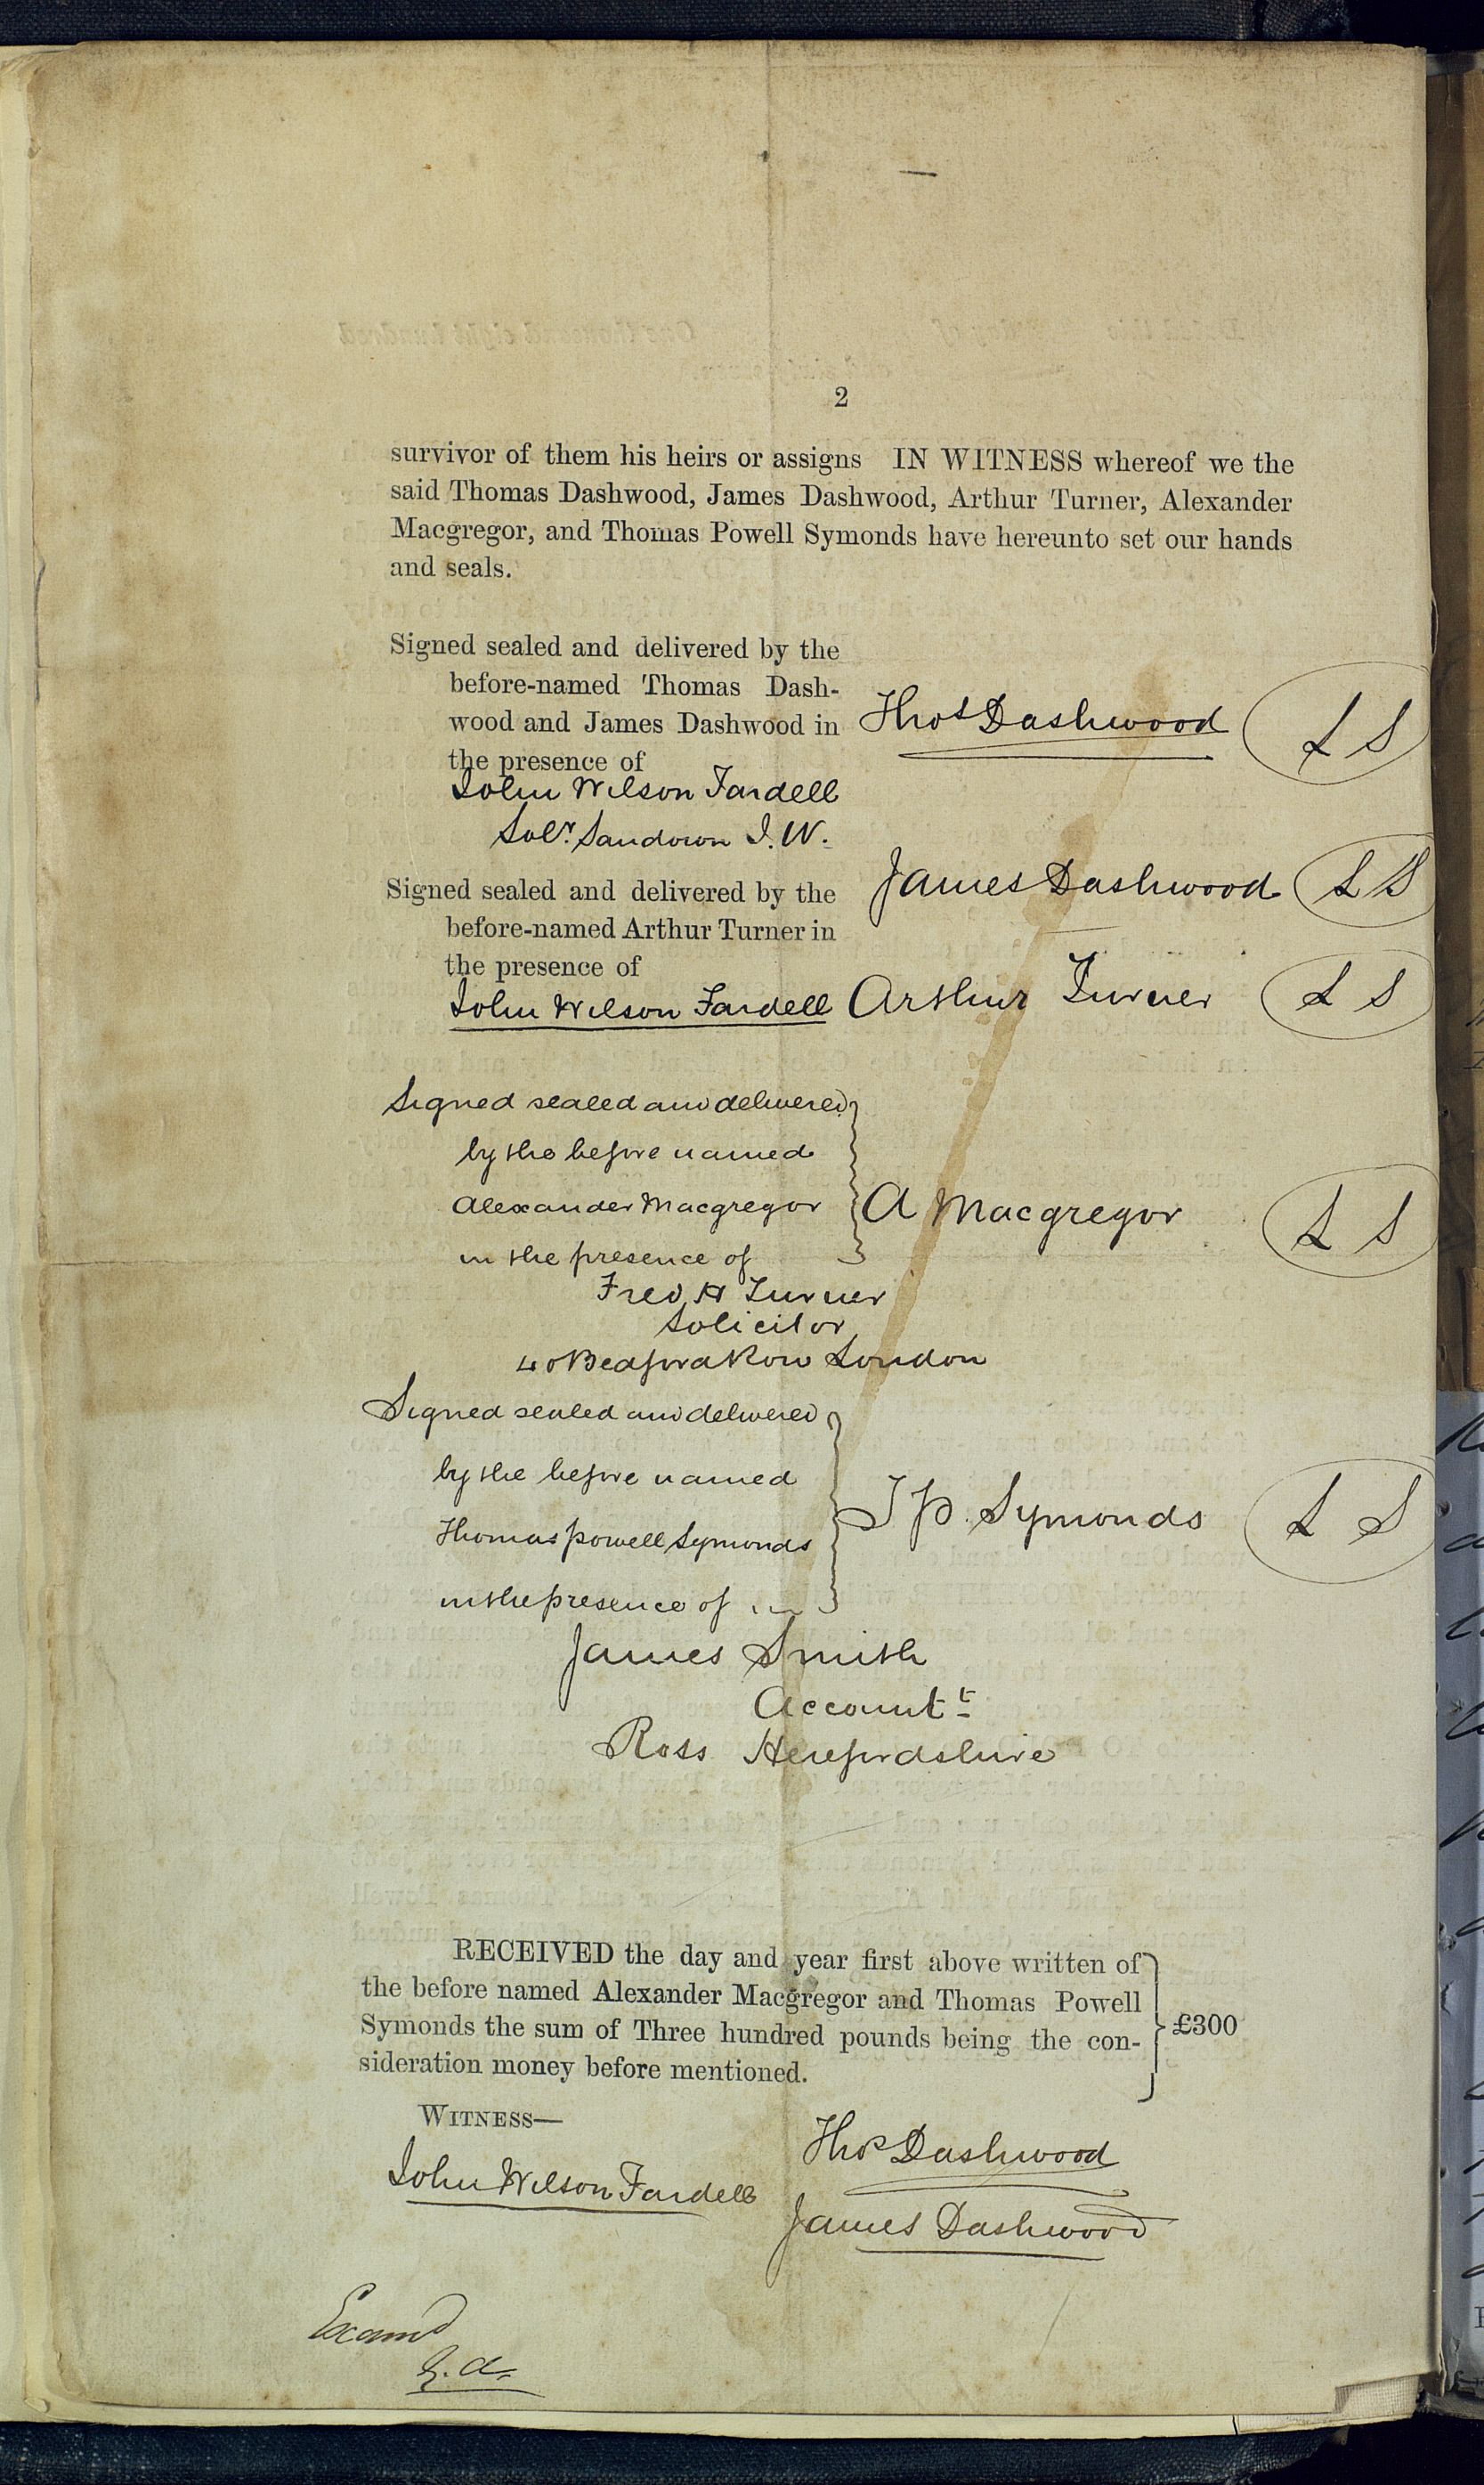 2
survivor of them his heirs or assigns IN WITNESS whereof we the
said Thomas Dashwood, James Dashwood, Arthur Turner, Alexander
Macgregor, and Thomas Powell Symonds have hereunto set our hands
and seals.
Signed sealed and delivered by the
before-named Thomas Dash-
wood and James Dashwood in
the presence of
Thos Dashwood L S
John Wilson Fardell
Solr. Sandown I.W.
James Dashwood L S
Signed sealed and delivered by the
before-named Arthur Turner in
the presence of
John Wilson Fardell Arthur Turner L S
Signed sealed and delivered
by the before named
Alexander Macgregor
in the presence of
A Macgregor L S
Fred H Turner
Solicitor
40 Bedford Row London
Signed sealed and delivered
by the before named
Thomas Powell Symonds
in the presence of
T P. Symonds L S
James Smith
Accountt
Ross Herefordshire
RECEIVED the day and year first above written of
the before named Alexander Macgregor and Thomas Powell
Symonds the sum of Three hundred pounds being the con-
sideration money before mentioned.
£300
WITNESS—
Thos Dashwood
John Wilson Fardell
James Dashwood
Examd